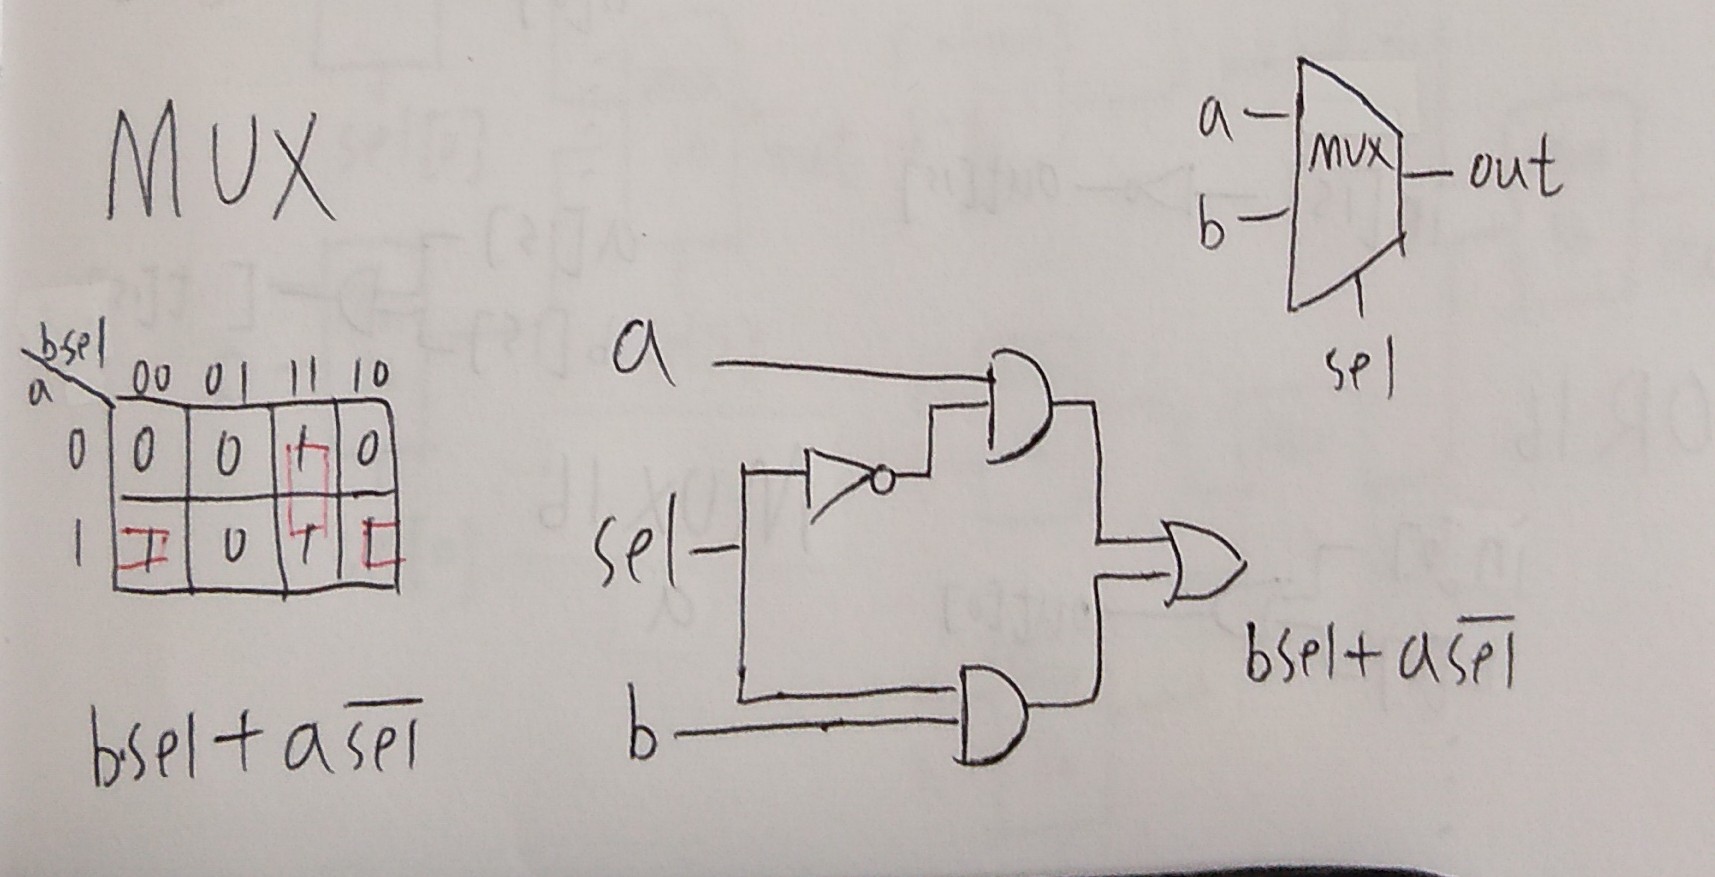 MUX
a
b
MUX
out
sel
bsel
a
00 01 11 10
0 0 0 1 0
1 1 0 1 1
b·sel + a s̅e̅l̅
a
sel
b
bsel + a s̅e̅l̅